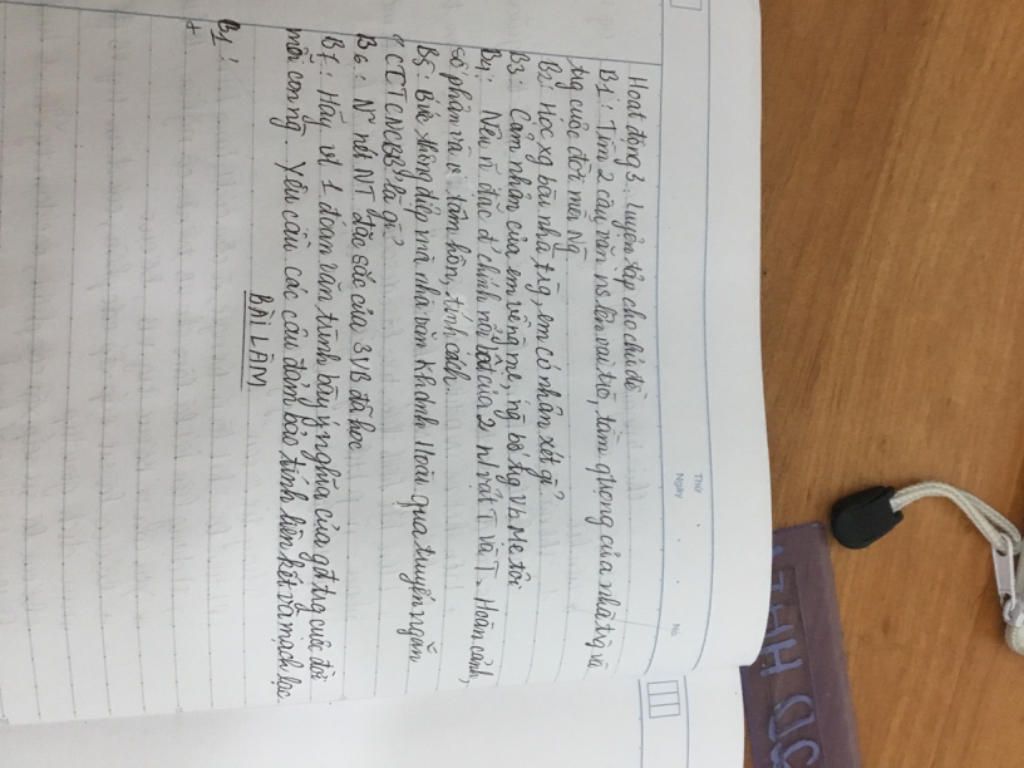 Thứ
Ngày
No
Hoạt động 3. Luyện tập cho chủ đề
B1: Tìm 2 câu văn ns lên vai trò, tầm q trọng của nhà tg và
tg cuộc đời mỗi ng
B2: Học xg bài nhà tg, em có nhận xét gì?
B3: Cảm nhận của em về ng mẹ, ng bố tg Vb Mẹ tôi
B4: Nêu n~ đặc đ' chính nổi bật của 2 n/vật T và T. Hoàn cảnh,
số phận và vẻ tâm hồn, tính cách
B5: Bức thông điệp mà nhà văn Khánh Hoài qua truyện ngắn
"CTCTCNCBB" là gì?
B6: N~ nét NT đặc sắc của 3 VB đã học
B7: Hãy vt 1 đoạn văn trình bày ý nghĩa của gđ tg cuộc đời
mỗi con ng. Yêu cầu các câu đảm bảo tính liên kết và mạch lạc
BÀI LÀM
B1:
+